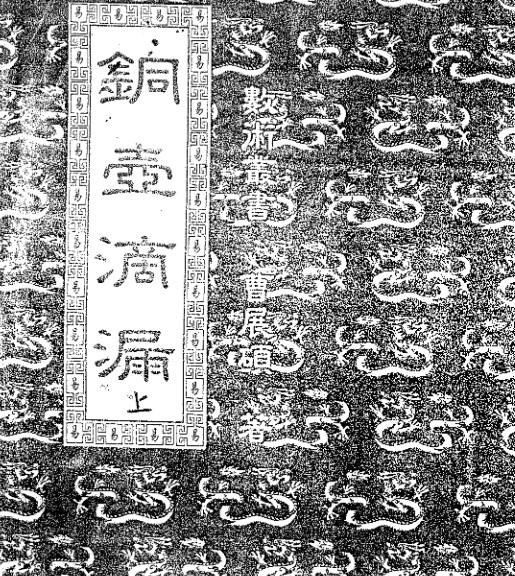 數術叢書 曹展碩 著
銅壺滴漏
上